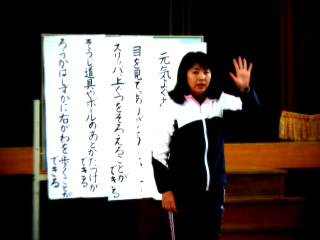 元気よく
目を見てありがとう
スリッパ上ぐつをそろえることができる
そうじ道具やボールのあとかたづけができる
ろうかはしずかに右がわを歩くことができる